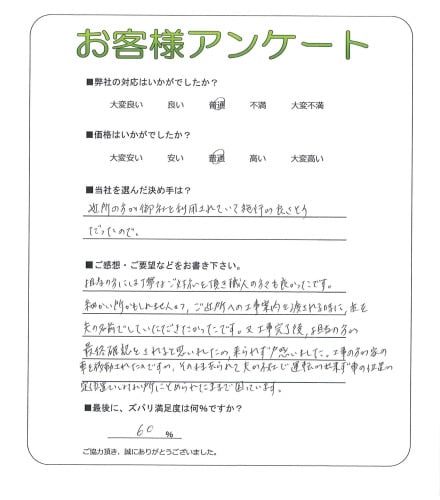 お客様アンケート
■弊社の対応はいかがでしたか？
大変良い 良い 普通 不満 大変不満
■価格はいかがでしたか？
大変安い 安い 普通 高い 大変高い
■当社を選んだ決め手は？
近所の方が御社を利用されていて施行の良さそう
だったので。
■ご感想・ご要望などをお書き下さい。
担当の方には丁寧なご対応を頂き職人の方も良かったです。
細かい所かもしれませんが、ご近所への工事案内を渡される時に、
夫の名前でしていただきたかったです。又工事完了後、担当の方の
最終確認をされると思いましたの、来られず？思いました。工事の方が家の
車を移動されたのですが、そのまま
で困っています。
■最後に、ズバリ満足度は何％ですか？
60 %
ご協力頂き、誠にありがとうございました。